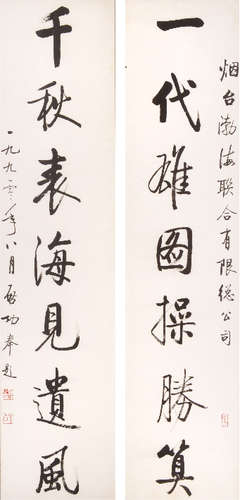 烟台渤海联合有限总公司
一代雄图操胜算
千秋表海見遺風
一九九〇年八月启功奉题